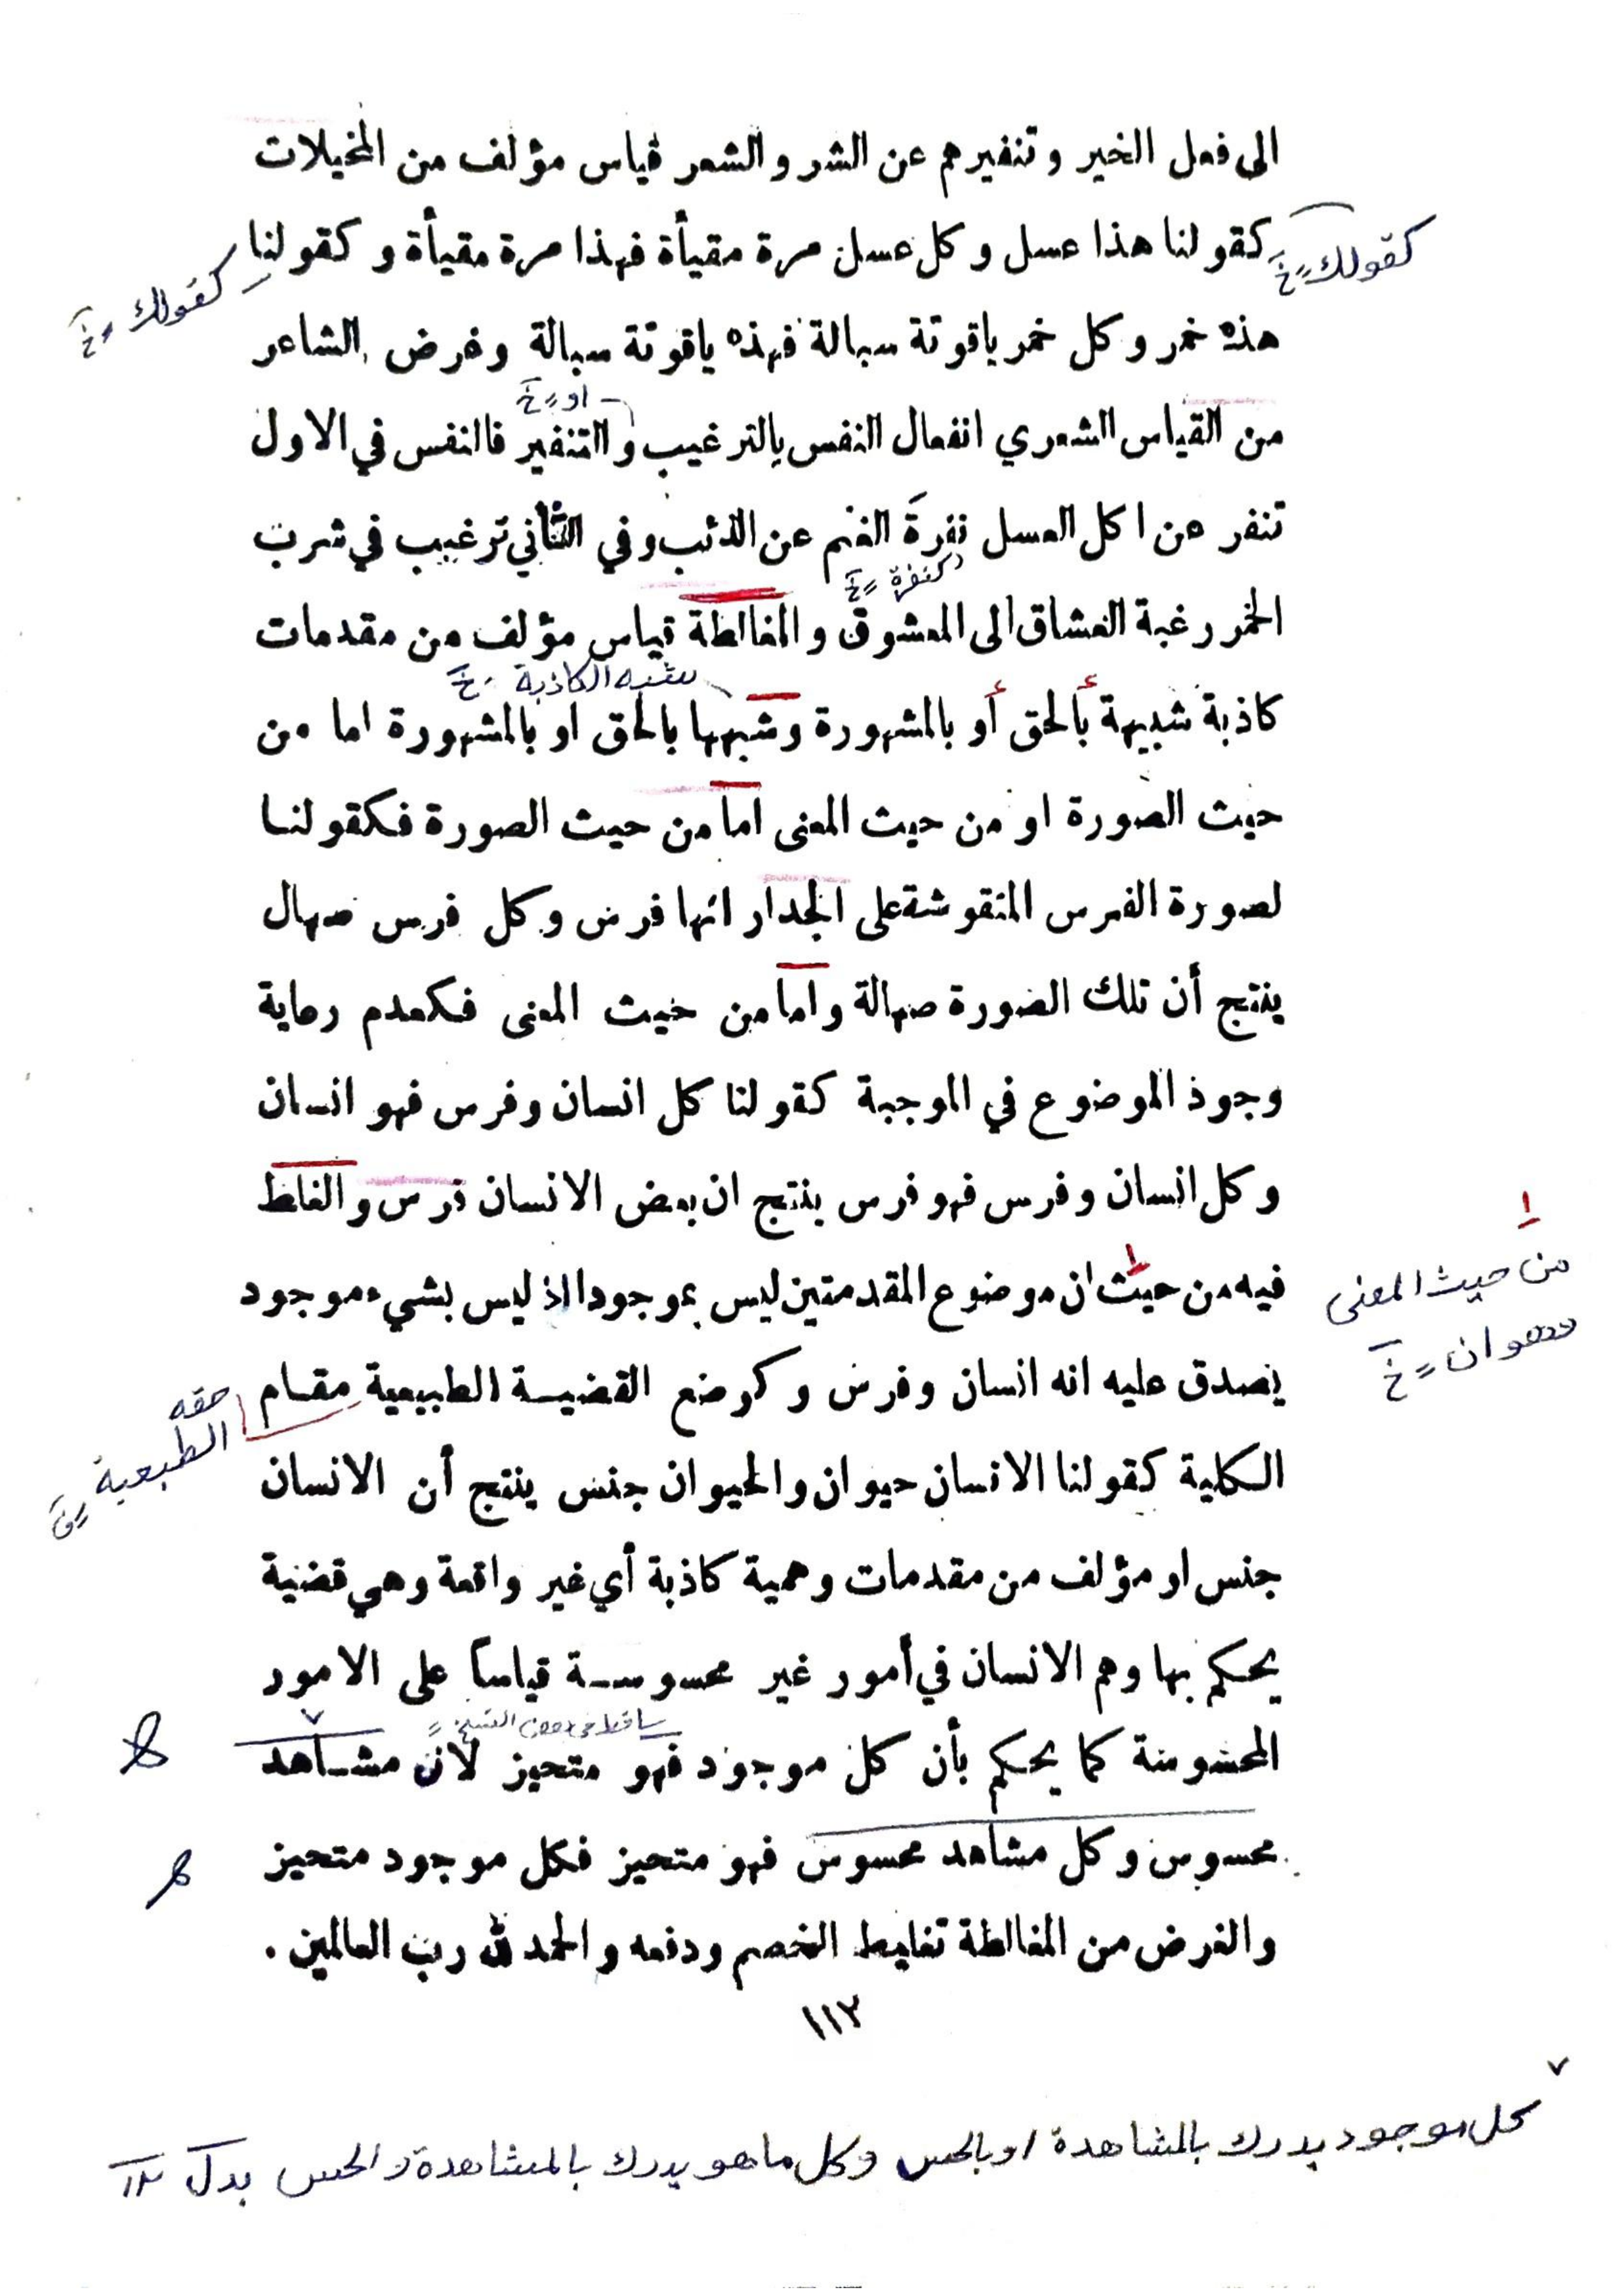 الى فعل الخير وتنفيرهم عن الشر والشعر قياس مؤلف من المخيلات
كقولنا هذا عسل وكل عسل مرة مقيأة فهذا مرة مقيأة وكقولنا
كقولك خ
كقولك خ
هذه خمر وكل خمر ياقوتة سيالة فهذه ياقوتة سيالة وغرض الشاعر
او خ
من القياس الشعري انفعال النفس بالترغيب والتنفير فالنفس في الاول
تنفر عن اكل العسل نفرة الغنم عن الذئب وفي الثاني ترغيب في شرب
كنفرة خ
الخمر رغبة العشاق الى المعشوق والمغالطة قياس مؤلف من مقدمات
الكاذبة خ
كاذبة شبيهة بالحق أو بالمشهورة وشبهها بالحق او بالمشهورة اما من
حيث الصورة او من حيث المعنى اما من حيث الصورة فكقولنا
لصورة الفرس المنقوشة على الجدار انها فرس وكل فرس صهال
ينتج أن تلك الصورة صهالة واما من حيث المعنى فكعدم رعاية
وجود الموضوع في الموجبة كقولنا كل انسان وفرس فهو انسان
وكل انسان وفرس فهو فرس ينتج ان بعض الانسان فرس والغلط
فيه من حيث ان موضوع المقدمتين ليس بموجود اذ ليس بشيء موجود
١
من حيث المعنى
هو ان خ
يصدق عليه انه انسان وفرس وكوضع القضية الطبيعية مقام
حقه
الطبيعية
الكلية كقولنا الانسان حيوان والحيوان جنس ينتج أن الانسان
جنس او مؤلف من مقدمات وهمية كاذبة أي غير واقعة وهي قضية
يحكم بها وهم الانسان في أمور غير محسوسة قياساً على الامور
ساقط من بعض النسخ
المحسوسة كما يحكم بأن كل موجود فهو متحيز لان مشاهد
محسوس وكل مشاهد محسوس فهو متحيز فكل موجود متحيز
والغرض من المغالطة تغليط الخصم ودفعه والحمد لله رب العالمين .
١١٢
كل موجود يدرك بالمشاهدة او بالحس وكل ما هو يدرك بالمشاهدة والحس بدل